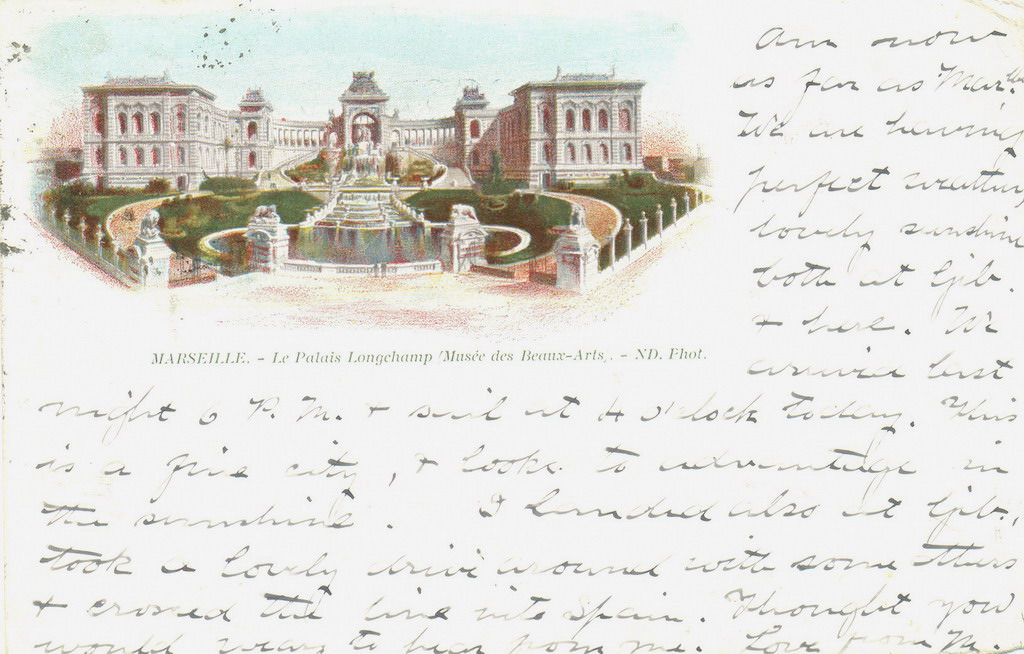 Am now
as far as Mar.lls
We are having
perfect weather,
lovely sunshine
both at Gib.
+ here. We
arrived last
MARSEILLE. - Le Palais Longchamp (Musée des Beaux-Arts). - ND. Phot.
night 6 P.M. + sail at 4 o'clock today. This
is a fine city, + looks to advantage in
the sunshine. I landed also at Gib.,
took a lovely drive around with some others
+ crossed the line into Spain. Thought you
would to hear from me. Love from M.